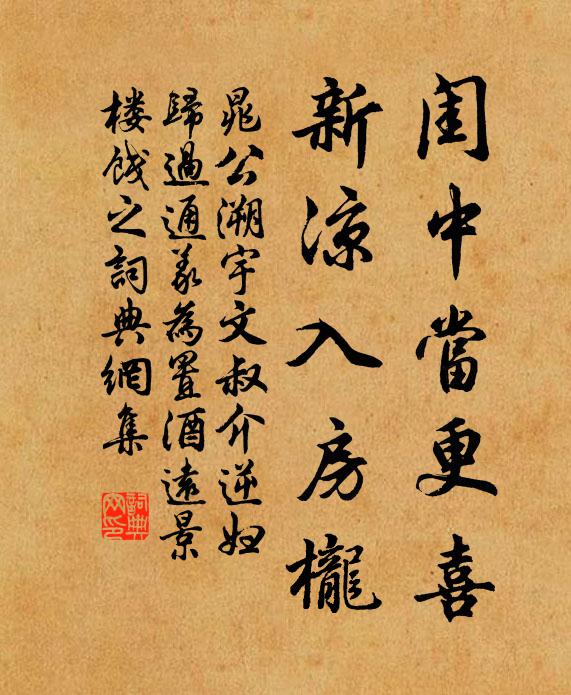 闺中當更喜
新涼入房櫳
晁公溯宇文叔介逆婦
歸過通義為置酒遠景
楼餞之詞典網集
詞典
网印